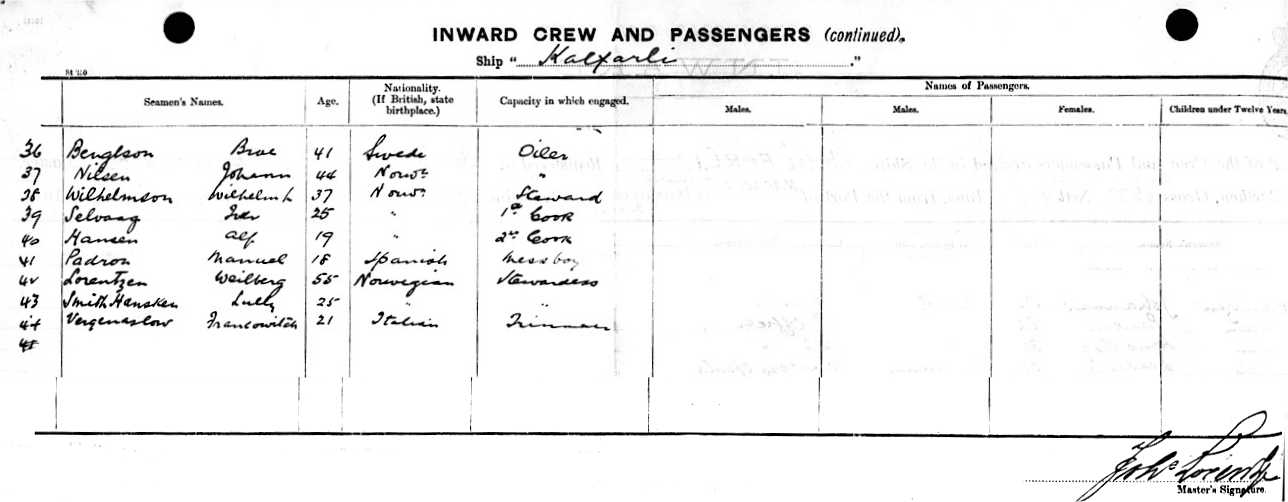 INWARD CREW AND PASSENGERS (continued).
Ship "Kalfarli."
Seamen's Names. Age. Nationality. (If British, state birthplace.) Capacity in which engaged. Names of Passengers.
Males. Males. Females. Children under Twelve Years
36 Benglson Broe 41 Swede Oiler
37 Nilsen Johann 44 Norwn "
38 Wilhelmson Wilhelm 37 Norwn Steward
39 Selvaag Iver 25 " 1st Cook
40 Hansen Alf 19 " 2nd Cook
41 Padron Manuel 18 Spanish Mess boy
42 Lorentzen Weilberg 55 Norwegian Stewardess
43 Smith Hansken Lully 25 " "
44 Vergenaslow Francowitch 21 Italian Trimmer
45
Master's Signature.